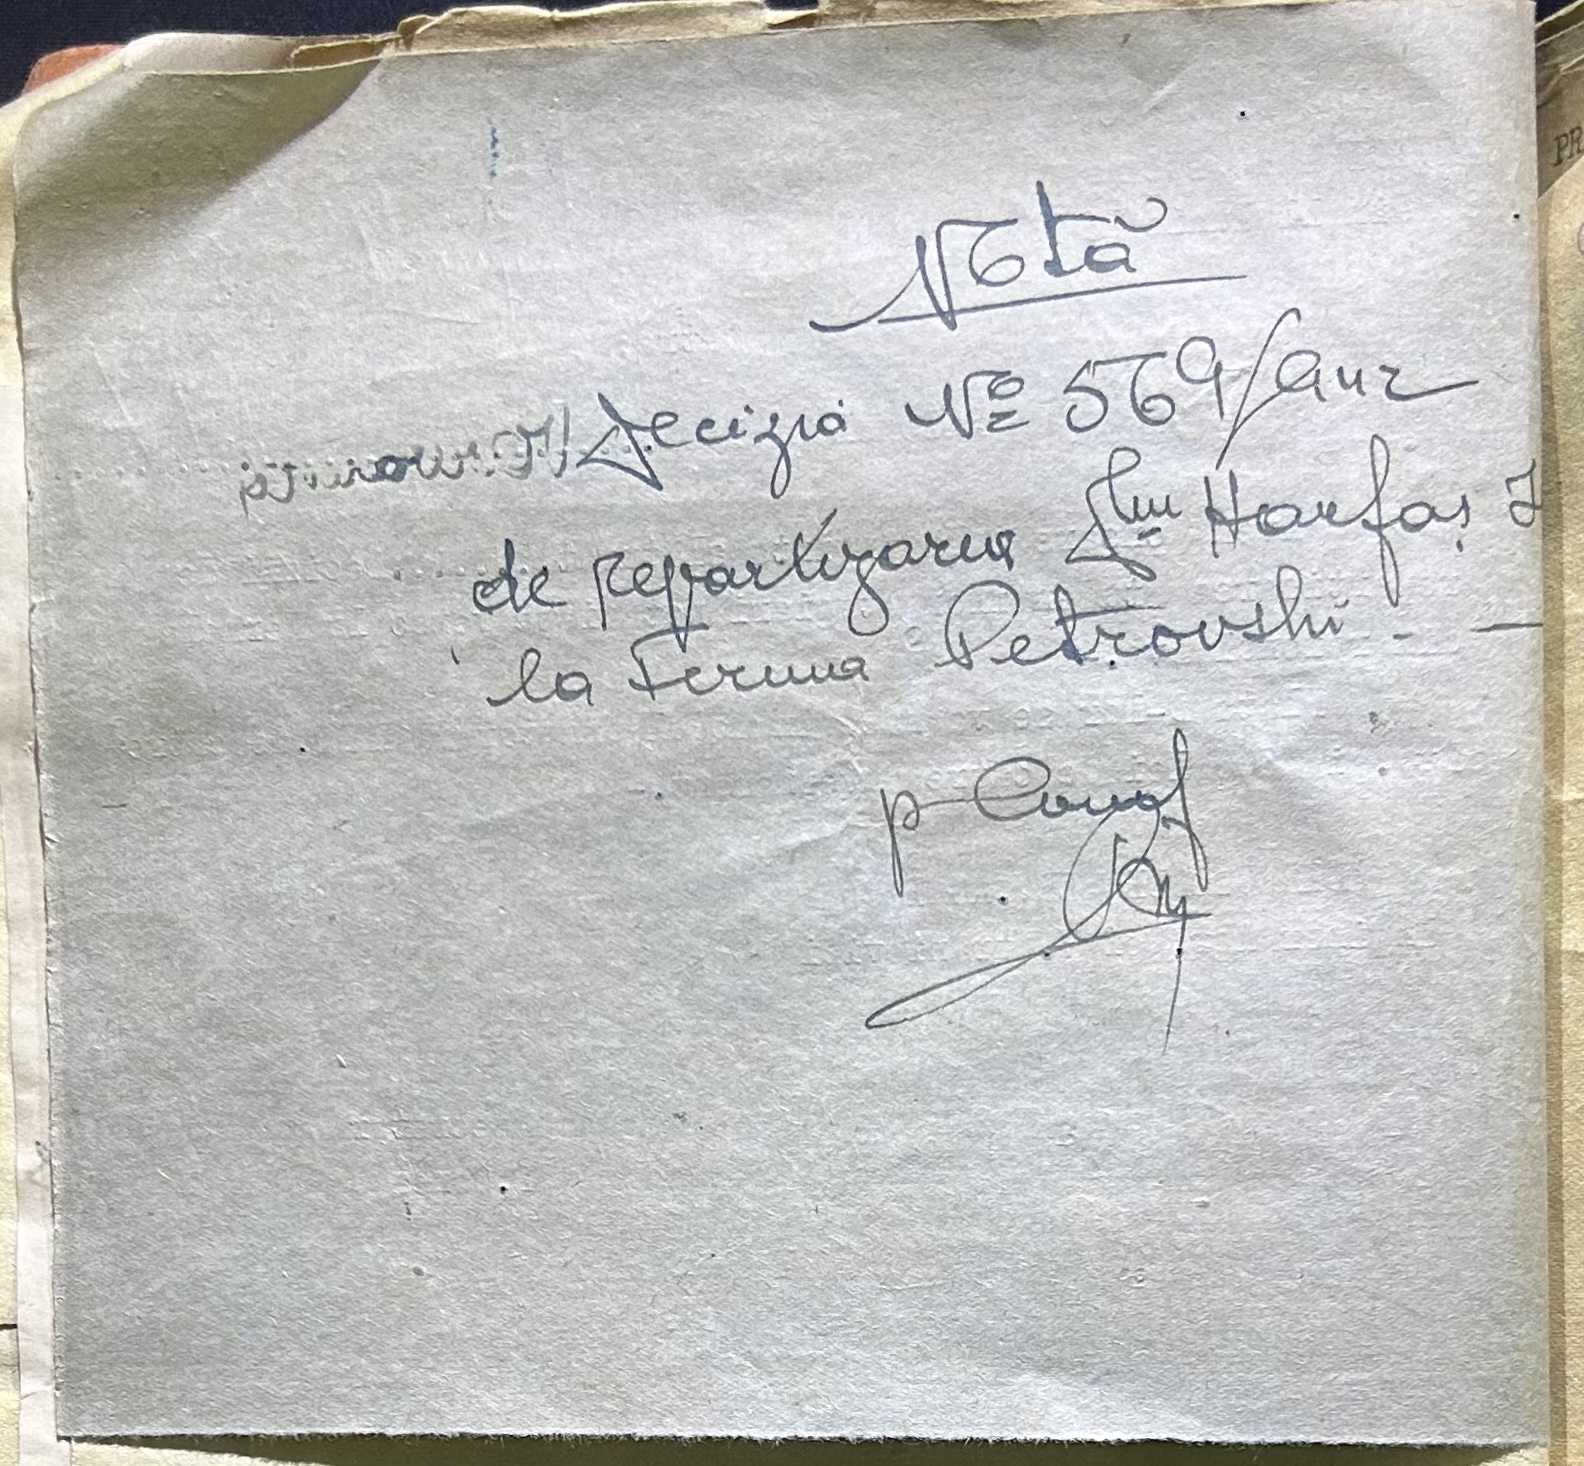 Notă
Decizia No 569/942
de repartizarea Dlui Harfaș I
la Ferma Petrovski - —
p Conf
PR